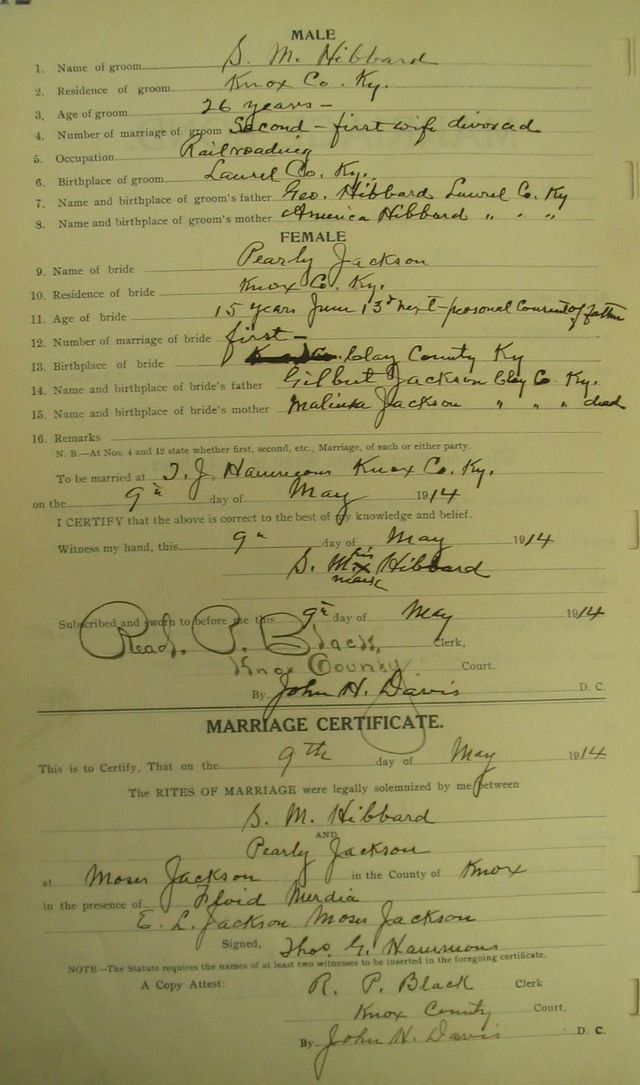 MALE
1. Name of groom S. M. Hibbard
2. Residence of groom Knox Co. Ky.
3. Age of groom 26 years –
4. Number of marriage of groom Second – first wife divorced
5. Occupation Railroading
6. Birthplace of groom Laurel Co. Ky.
7. Name and birthplace of groom's father Geo. Hibbard Laurel Co. Ky
8. Name and birthplace of groom's mother America Hibbard " " "
FEMALE
9. Name of bride Pearly Jackson
10. Residence of bride Knox Co. Ky.
11. Age of bride 15 years June 13d next – personal consent of father
12. Number of marriage of bride first –
13. Birthplace of bride Clay County Ky
14. Name and birthplace of bride's father Gilbert Jackson Clay Co Ky.
15. Name and birthplace of bride's mother Malinka Jackson " " " dead
16. Remarks
N. B.—At Nos. 4 and 12 state whether first, second, etc., Marriage, of each or either party.
To be married at T. J. Hammons Knox Co. Ky.
on the 9th day of May 1914
I CERTIFY that the above is correct to the best of my knowledge and belief.
Witness my hand, this 9th day of May 1914
his
S. M. x Hibbard
mark
Subscribed and sworn to before me this 9th day of May 1914
Read. P. Black, Clerk,
Knox County Court.
By John H. Davis D. C.
MARRIAGE CERTIFICATE.
This is to Certify, That on the 9th day of May 1914
The RITES OF MARRIAGE were legally solemnized by me between
S. M. Hibbard
AND
Pearly Jackson
at Moses Jackson in the County of Knox
in the presence of Floid
E. L. Jackson Moses Jackson
Signed, Thos. G. Hammons
NOTE—The Statute requires the names of at least two witnesses to be inserted in the foregoing certificate.
A Copy Attest: R. P. Black Clerk
Knox County Court,
By John H. Davis D. C.